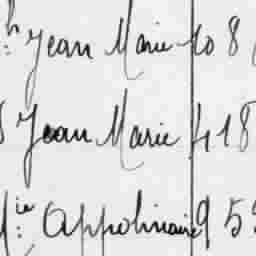 h: Jean Marie 40 8
Jean Marie 41 8
M.ie: Appolinaire 9 5